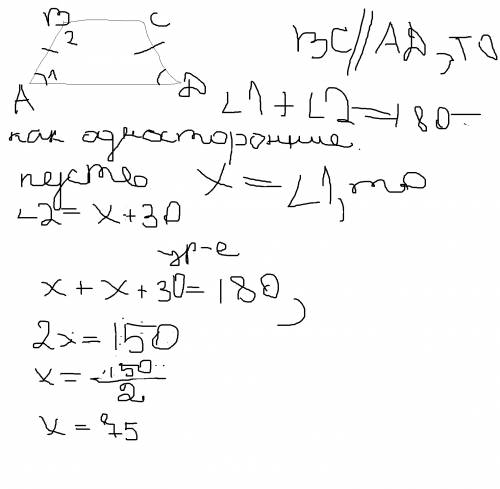 B C
2
1
A D
BC//AD, то
∠1 + ∠2 = 180-
как односторонние.
пусть x = ∠1, то
∠2 = x + 30
ур-е
x + x + 30 = 180,
2x = 150
x = 150/2
x = 75